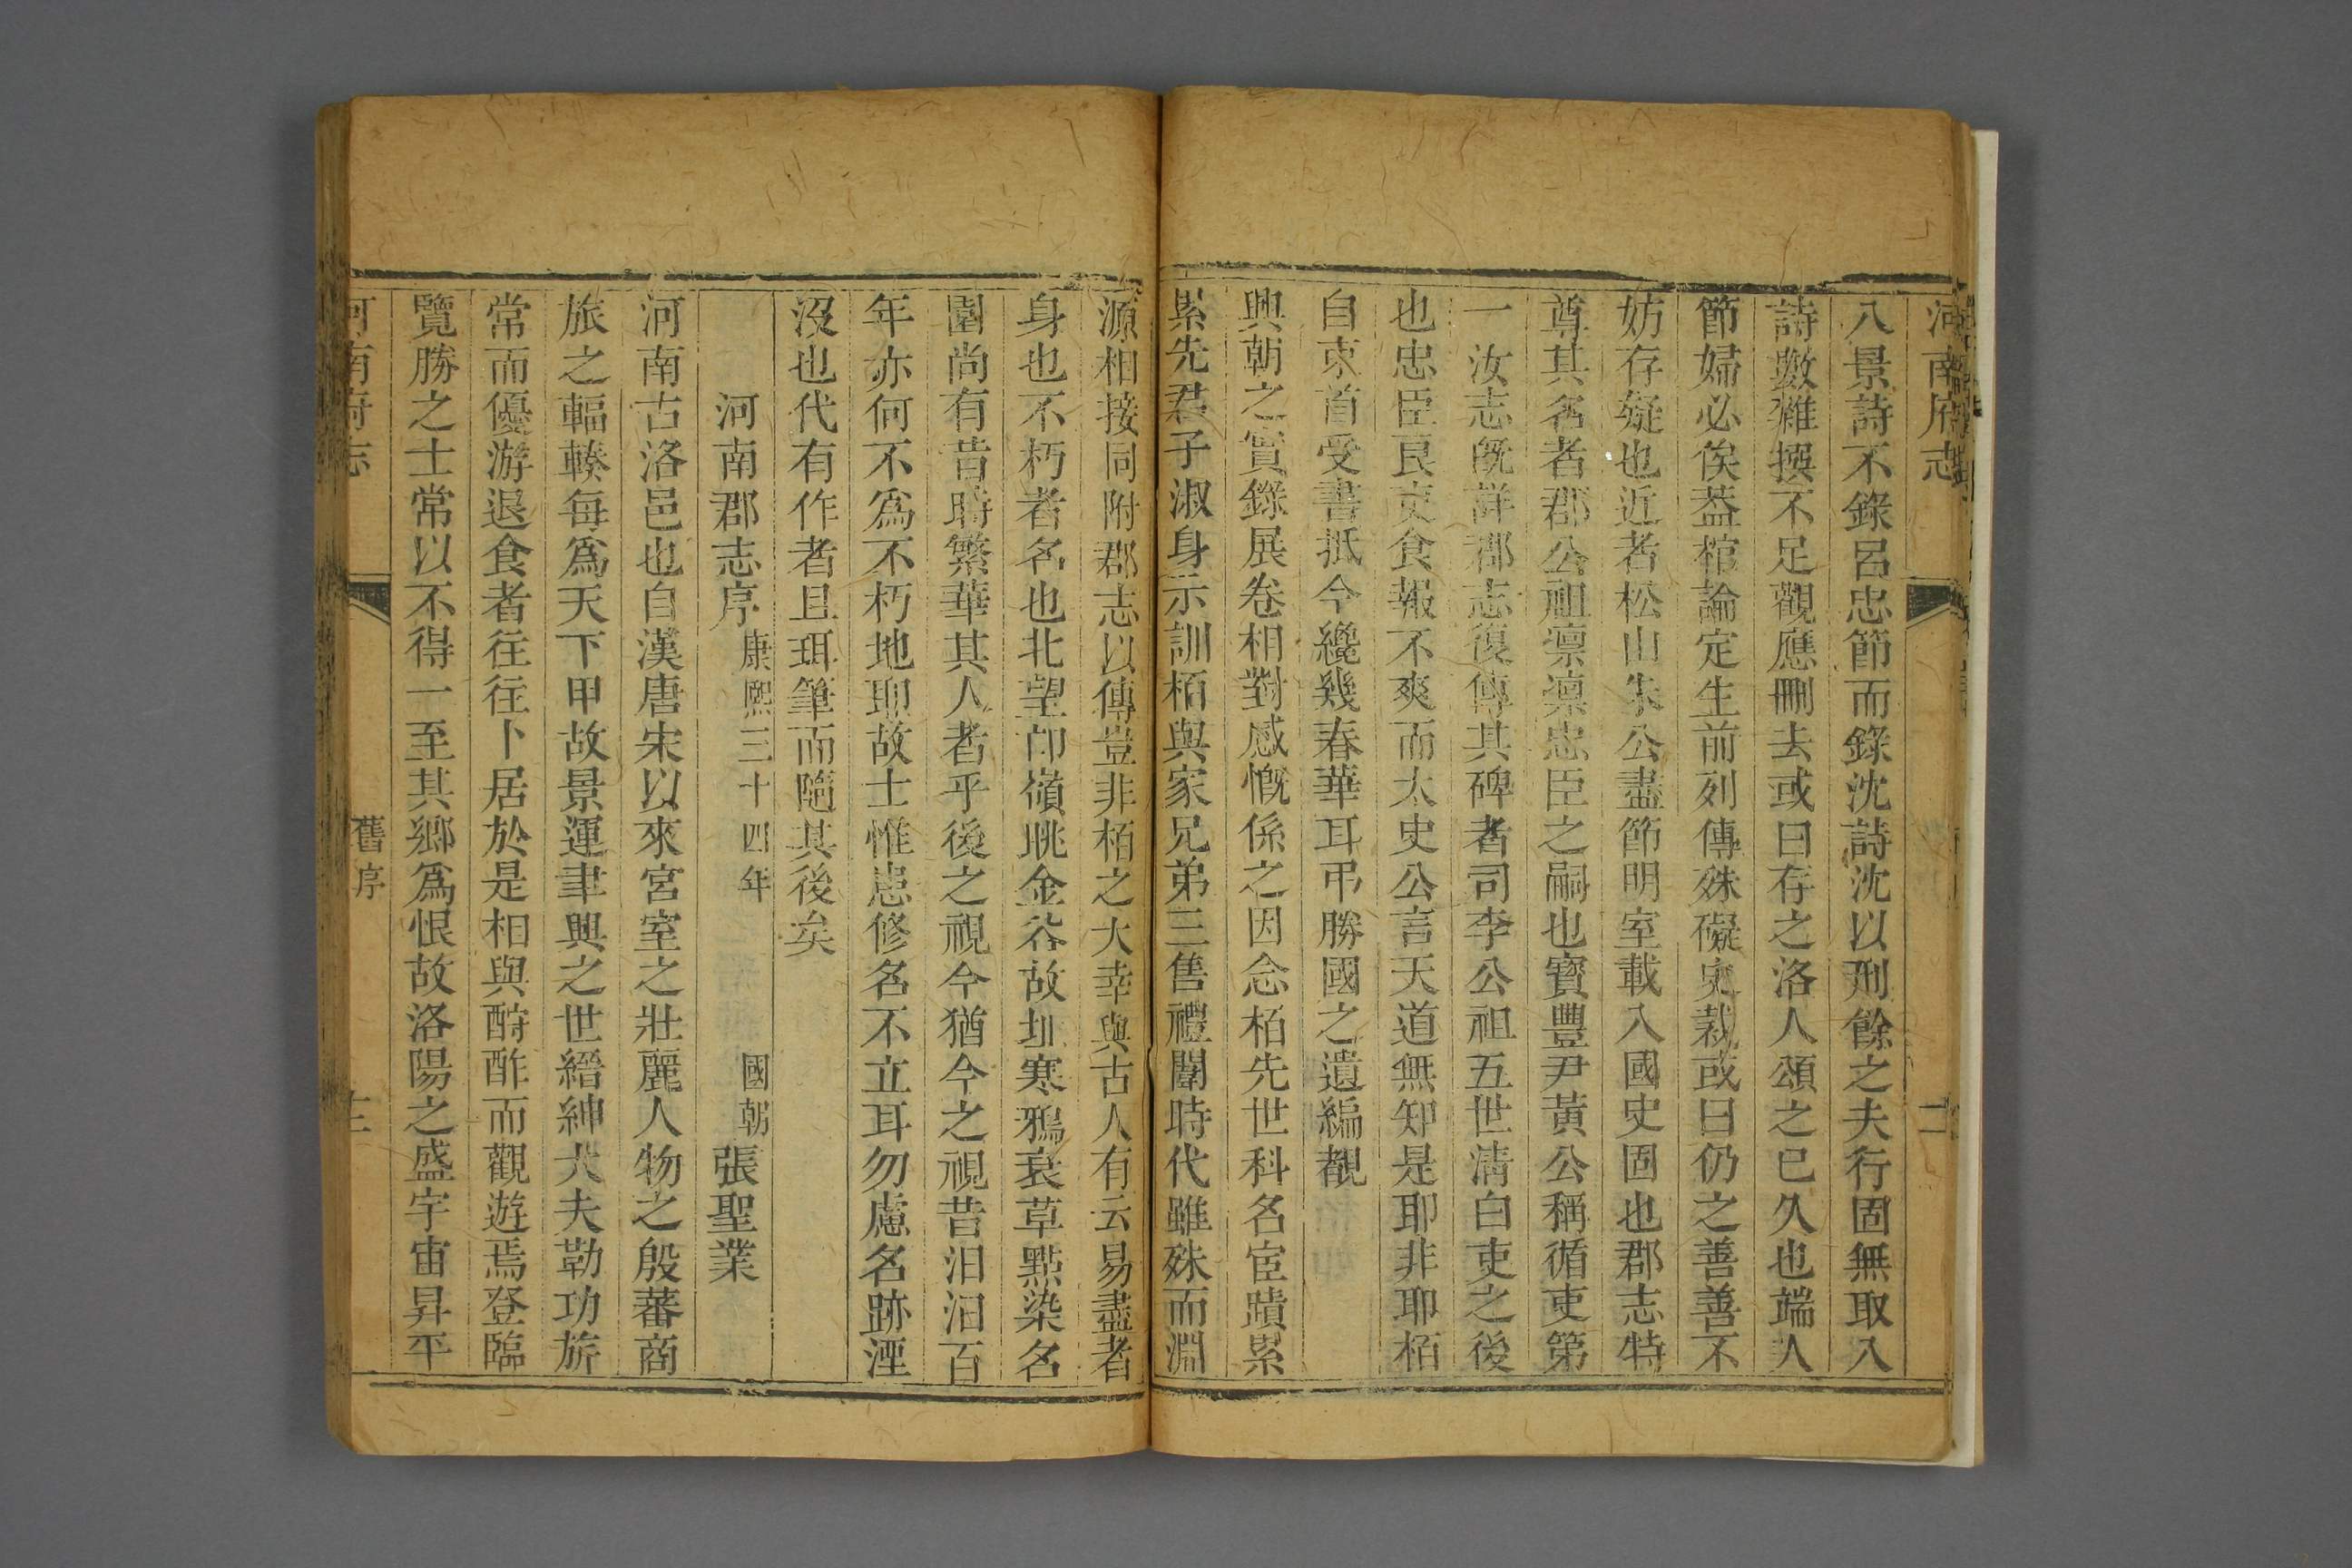 河南府志
二
八景詩不錄呂忠節而錄沈詩沈以刑餘之夫行固無取入
詩數雜撰不足觀應刪去或曰存之洛人頌之已久也端人
節婦必俟葢棺論定生前列傳殊礙史裁或曰仍之善善不
妨存疑也近者松山朱公盡節明室載入國史固也郡志特
尊其名者郡公祖凛凛忠臣之嗣也寶豐尹黃公稱循吏第
一汝志旣詳郡志復傳其碑者司李公祖五世清白吏之後
也忠臣良吏食報不爽而太史公言天道無知是耶非耶栢
自束首受書抵今纔幾春華耳弔勝國之遺編覩
興朝之實錄展卷相對感慨係之因念栢先世科名宦蹟累
累先君子淑身示訓栢與家兄弟三售禮闈時代雖殊而淵
源相接同附郡志以傳豈非栢之大幸與古人有云易盡者
身也不朽者名也北望邙嶺眺金谷故址寒鴉衰草點染名
園尚有昔時繁華其人者乎後之視今猶今之視昔汨汨百
年亦何不爲不朽地耶故士惟患修名不立耳勿慮名跡湮
沒也代有作者且珥筆而隨其後矣
河南郡志序康熙三十四年 國朝張聖業
河南古洛邑也自漢唐宋以來宮室之壯麗人物之殷蕃商
旅之輻輳每爲天下甲故景運聿興之世縉紳大夫勒功旂
常而優游退食者往往卜居於是相與酧酢而觀遊焉登臨
覽勝之士常以不得一至其鄉爲恨故洛陽之盛宇宙昇平
河南府志
舊序